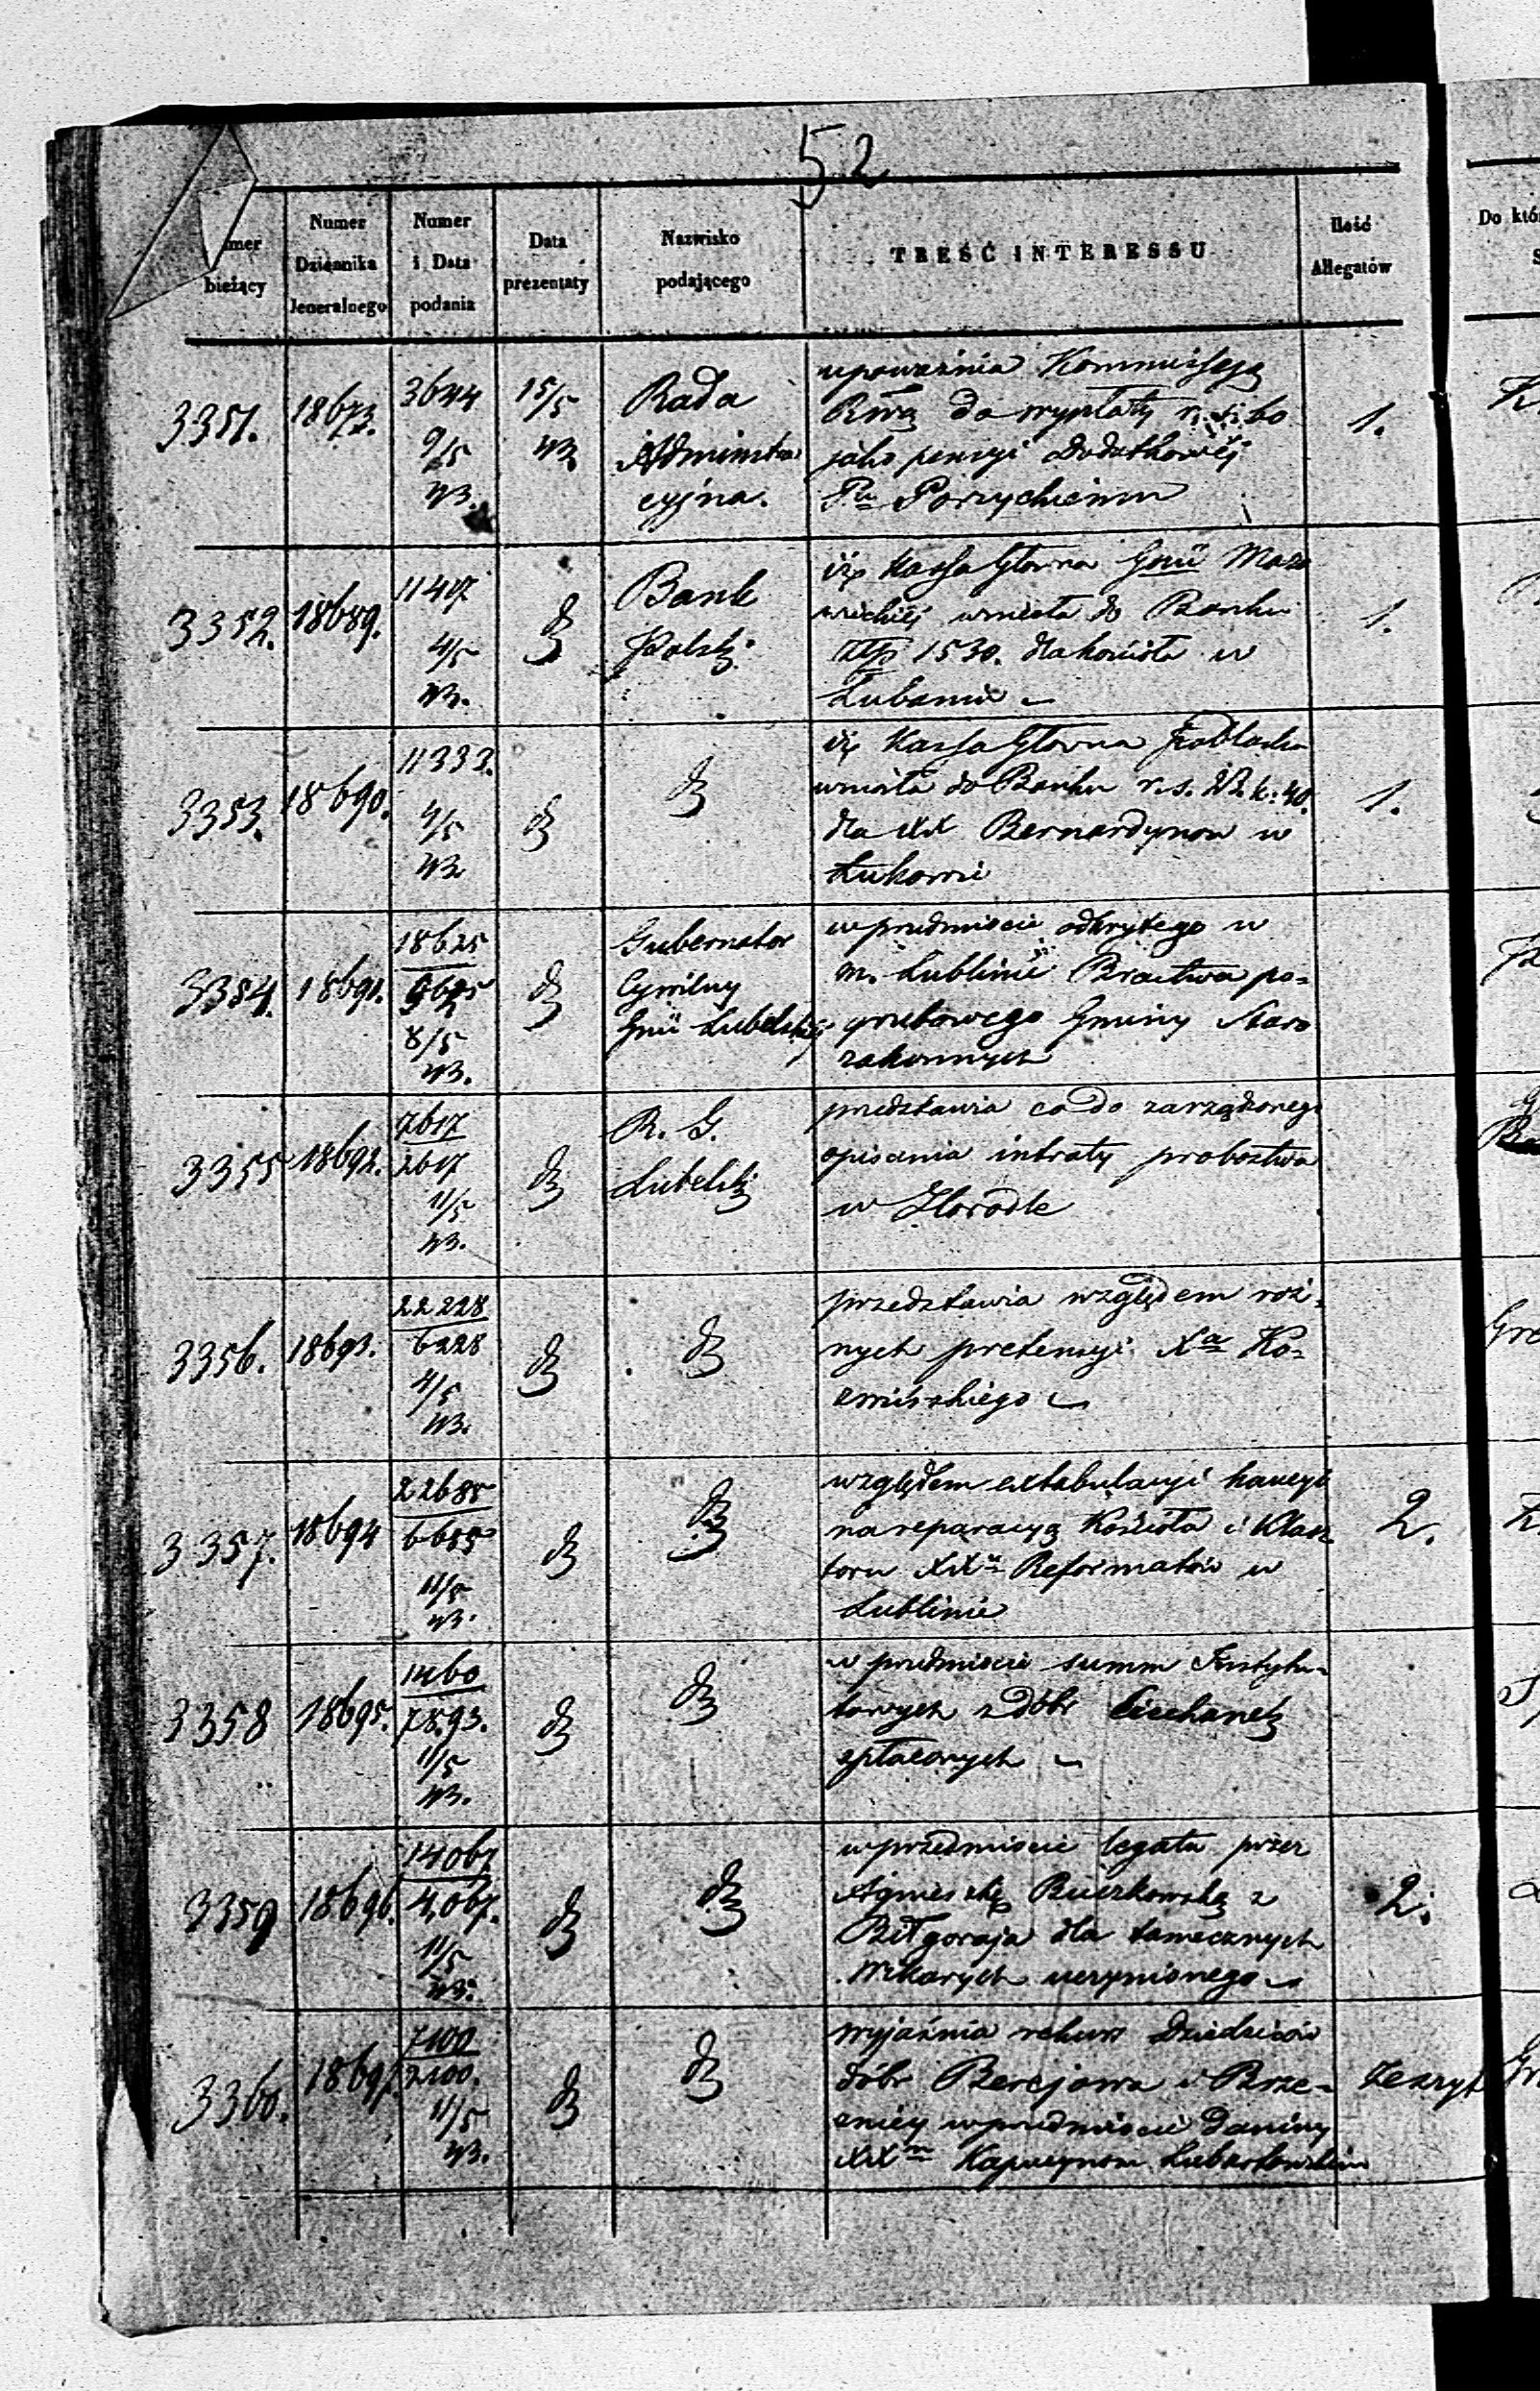 52
Numer
bieżący
Numer
Dziennika
Jeneralnego
Numer
i Data
podania
Data
prezentaty
Nazwisko
podającego
TREŚĆ INTERESSU
Ilość
Allegatów
3351.
18673.
3644
9/5
43.
15/5
43
Rada
Administra
cyjna.
upoważnia Kommissyą
Rwą do wypłaty r. s. 60
jako pensyi dodatkowéj
Pu Porzyckiemu
1.
3352.
18689.
11407
4/5
43.
dt
Bank
Polski
iż Kassa Główna Gnii Mazo
wieckiéj wniosła do Banku
złp 1530. dla kościoła w
Łubanie
1.
3353.
18690.
11333.
4/5
43
dt
dt
iż Kassa Główna Podlaska
wniosła do Banku r. s. k: 40.
dla XX Bernardynow w
Łukowie
1.
3354.
18691.
18625
5625
8/5
43.
dt
Gubernator
Cywilny
Gnii Lubelskiéj
w przedmiocie odkrytego w
m. Lublinie Bractwa po=
grzebowego Gminy Staro
zakonnych
3355
18692.
7617
2617
11/5
43.
dt
R. G.
Lubelski
przedstawia co do zarządzonego
opisania intraty probostwa
w Horodle
3356.
18693.
22228
6228
4/5
43.
dt
dt
przedstawia względem róż=
nych pretensyi Xa Ko=
źmińskiego
3357.
18694
22685
6685
11/5
43.
dt
dt
względem extabulacyi kaucyi
na reparacyą Kościoła i Klasz
toru XXw Reformatów w
Lublinie
2.
3358
18695.
1460
7893.
11/5
43.
dt
dt
w przedmiocie summ Instytu=
towych z dóbr Ciechanek
spłaconych
3359
18696.
14067
4,067.
11/5
43.
dt
dt
w przedmiocie legatu przez
Agnieszkę Buczkowską z
Biłgoraja dla tamecznych
Wikarych uczynionego
2.
3360.
18697.
7100
2100.
11/5
43.
dt
dt
wyjaśnia rekurs Dziedziców
dóbr Berejowa i Brze=
źnicy w przedmiocie daniny
XXm Kapucynom Lubartowskim
zeszyt